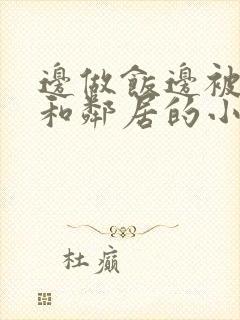 邊做飯邊被
和鄰居的小
杜癲